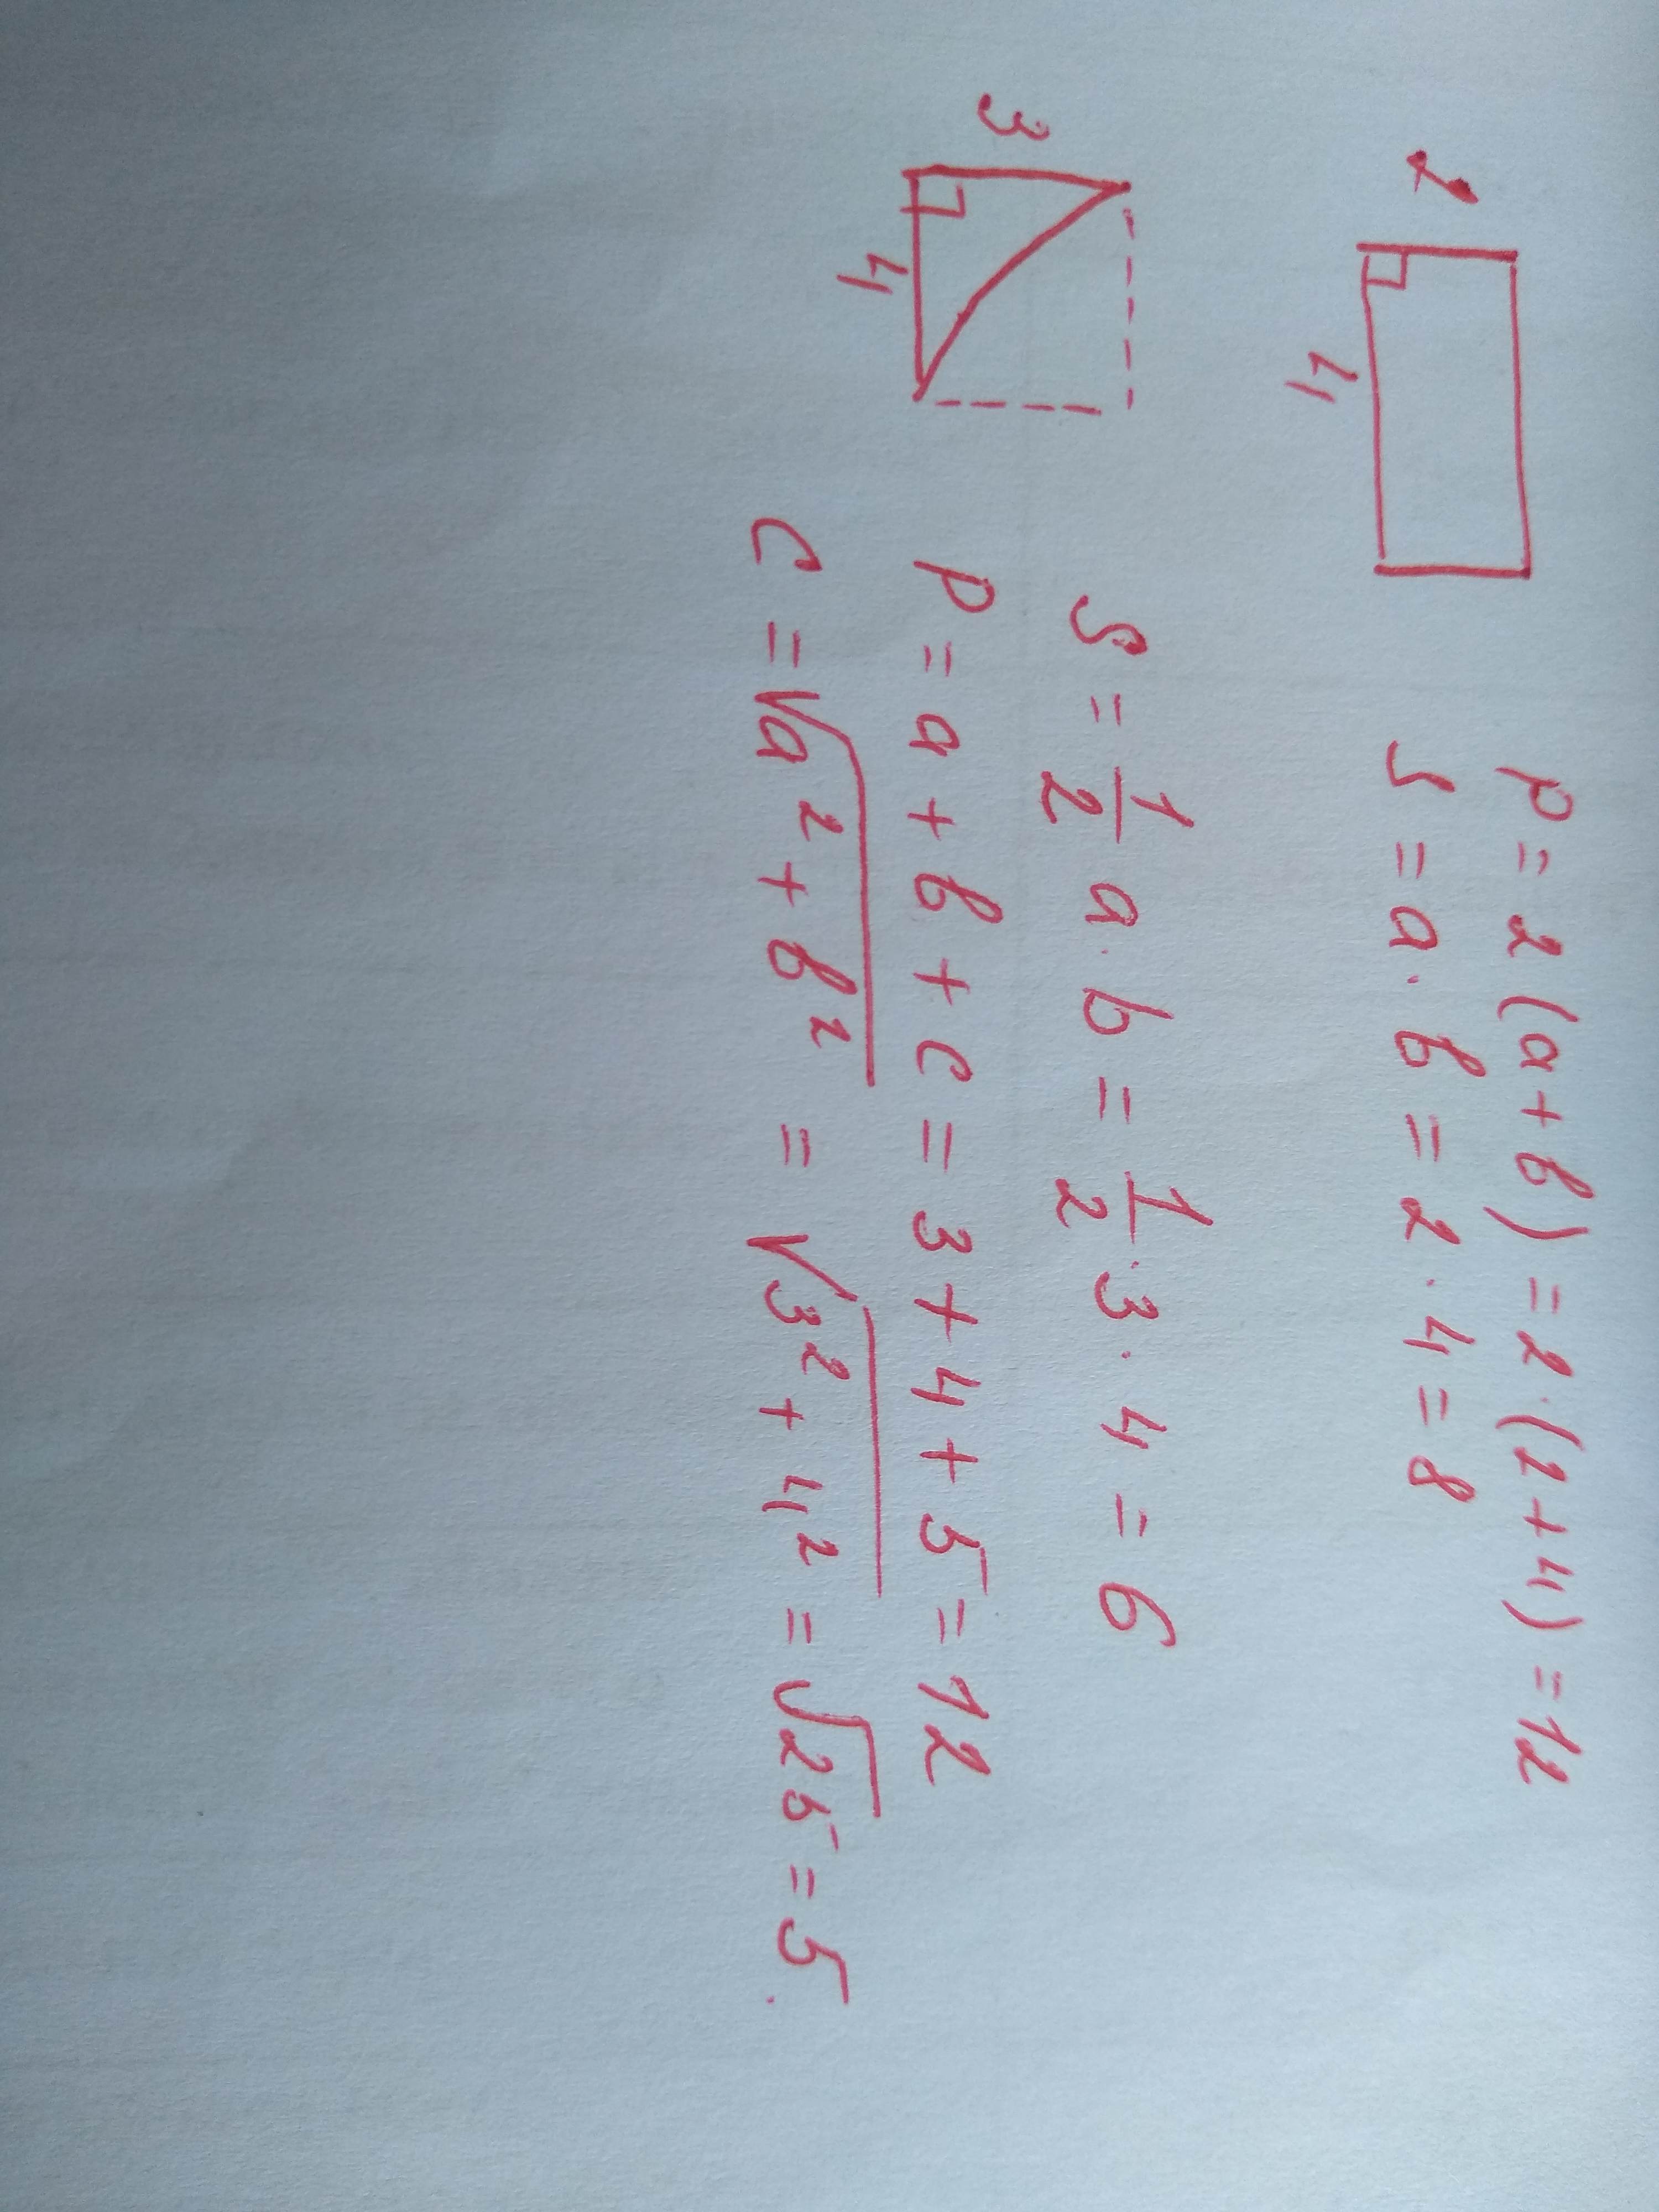 2
4
P = 2(a + b) = 2 · (2 + 4) = 12
S = a · b = 2 · 4 = 8
3
4
S = 1/2 a · b = 1/2 · 3 · 4 = 6
P = a + b + c = 3 + 4 + 5 = 12
C = √(a² + b²) = √(3² + 4²) = √25 = 5.